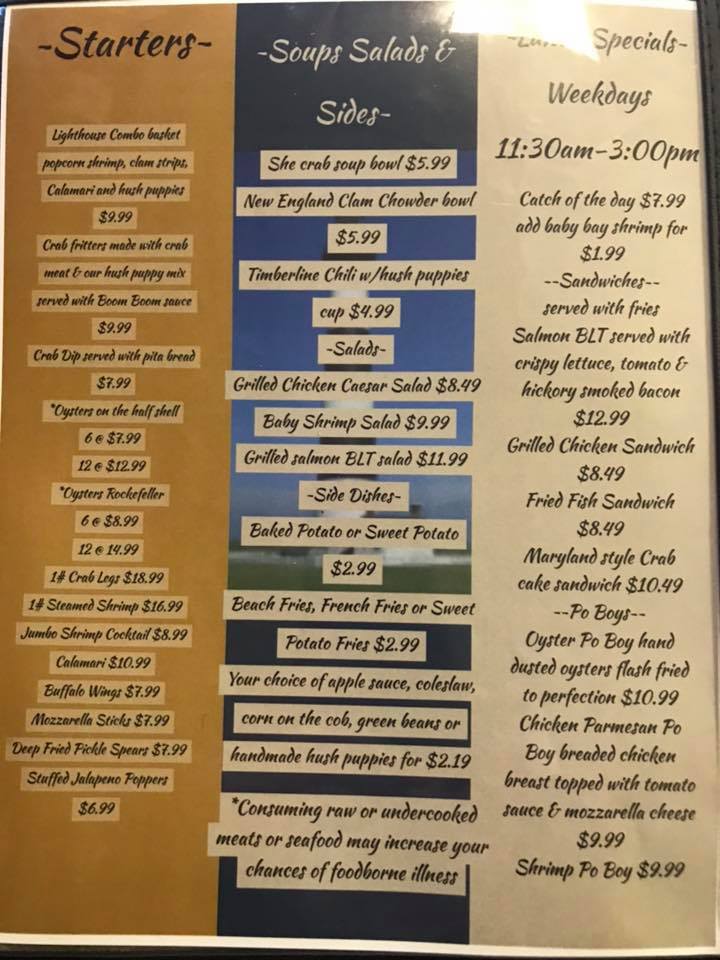 -Starters-
Lighthouse Combo basket
popcorn shrimp, clam strips,
Calamari and hush puppies
$9.99
Crab fritters made with crab
meat & our hush puppy mix
served with Boom Boom sauce
$9.99
Crab Dip served with pita bread
$7.99
*Oysters on the half shell
6 @ $7.99
12 @ $12.99
*Oysters Rockefeller
6 @ $8.99
12 @ 14.99
1# Crab Legs $18.99
1# Steamed Shrimp $16.99
Jumbo Shrimp Cocktail $8.99
Calamari $10.99
Buffalo Wings $7.99
Mozzarella Sticks $7.99
Deep Fried Pickle Spears $7.99
Stuffed Jalapeno Poppers
$6.99
-Soups Salads &
Sides-
She crab soup bowl $5.99
New England Clam Chowder bowl
$5.99
Timberline Chili w/hush puppies
cup $4.99
-Salads-
Grilled Chicken Caesar Salad $8.49
Baby Shrimp Salad $9.99
Grilled salmon BLT salad $11.99
-Side Dishes-
Baked Potato or Sweet Potato
$2.99
Beach Fries, French Fries or Sweet
Potato Fries $2.99
Your choice of apple sauce, coleslaw,
corn on the cob, green beans or
handmade hush puppies for $2.19
*Consuming raw or undercooked
meats or seafood may increase your
chances of foodborne illness
Specials-
Weekdays
11:30am-3:00pm
Catch of the day $7.99
add baby bay shrimp for
$1.99
--Sandwiches--
served with fries
Salmon BLT served with
crispy lettuce, tomato &
hickory smoked bacon
$12.99
Grilled Chicken Sandwich
$8.49
Fried Fish Sandwich
$8.49
Maryland style Crab
cake sandwich $10.49
--Po Boys--
Oyster Po Boy hand
dusted oysters flash fried
to perfection $10.99
Chicken Parmesan Po
Boy breaded chicken
breast topped with tomato
sauce & mozzarella cheese
$9.99
Shrimp Po Boy $9.99